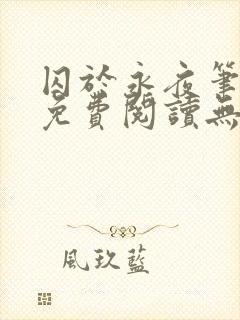 囚於永夜筆
免費閱讀無
風玖藍